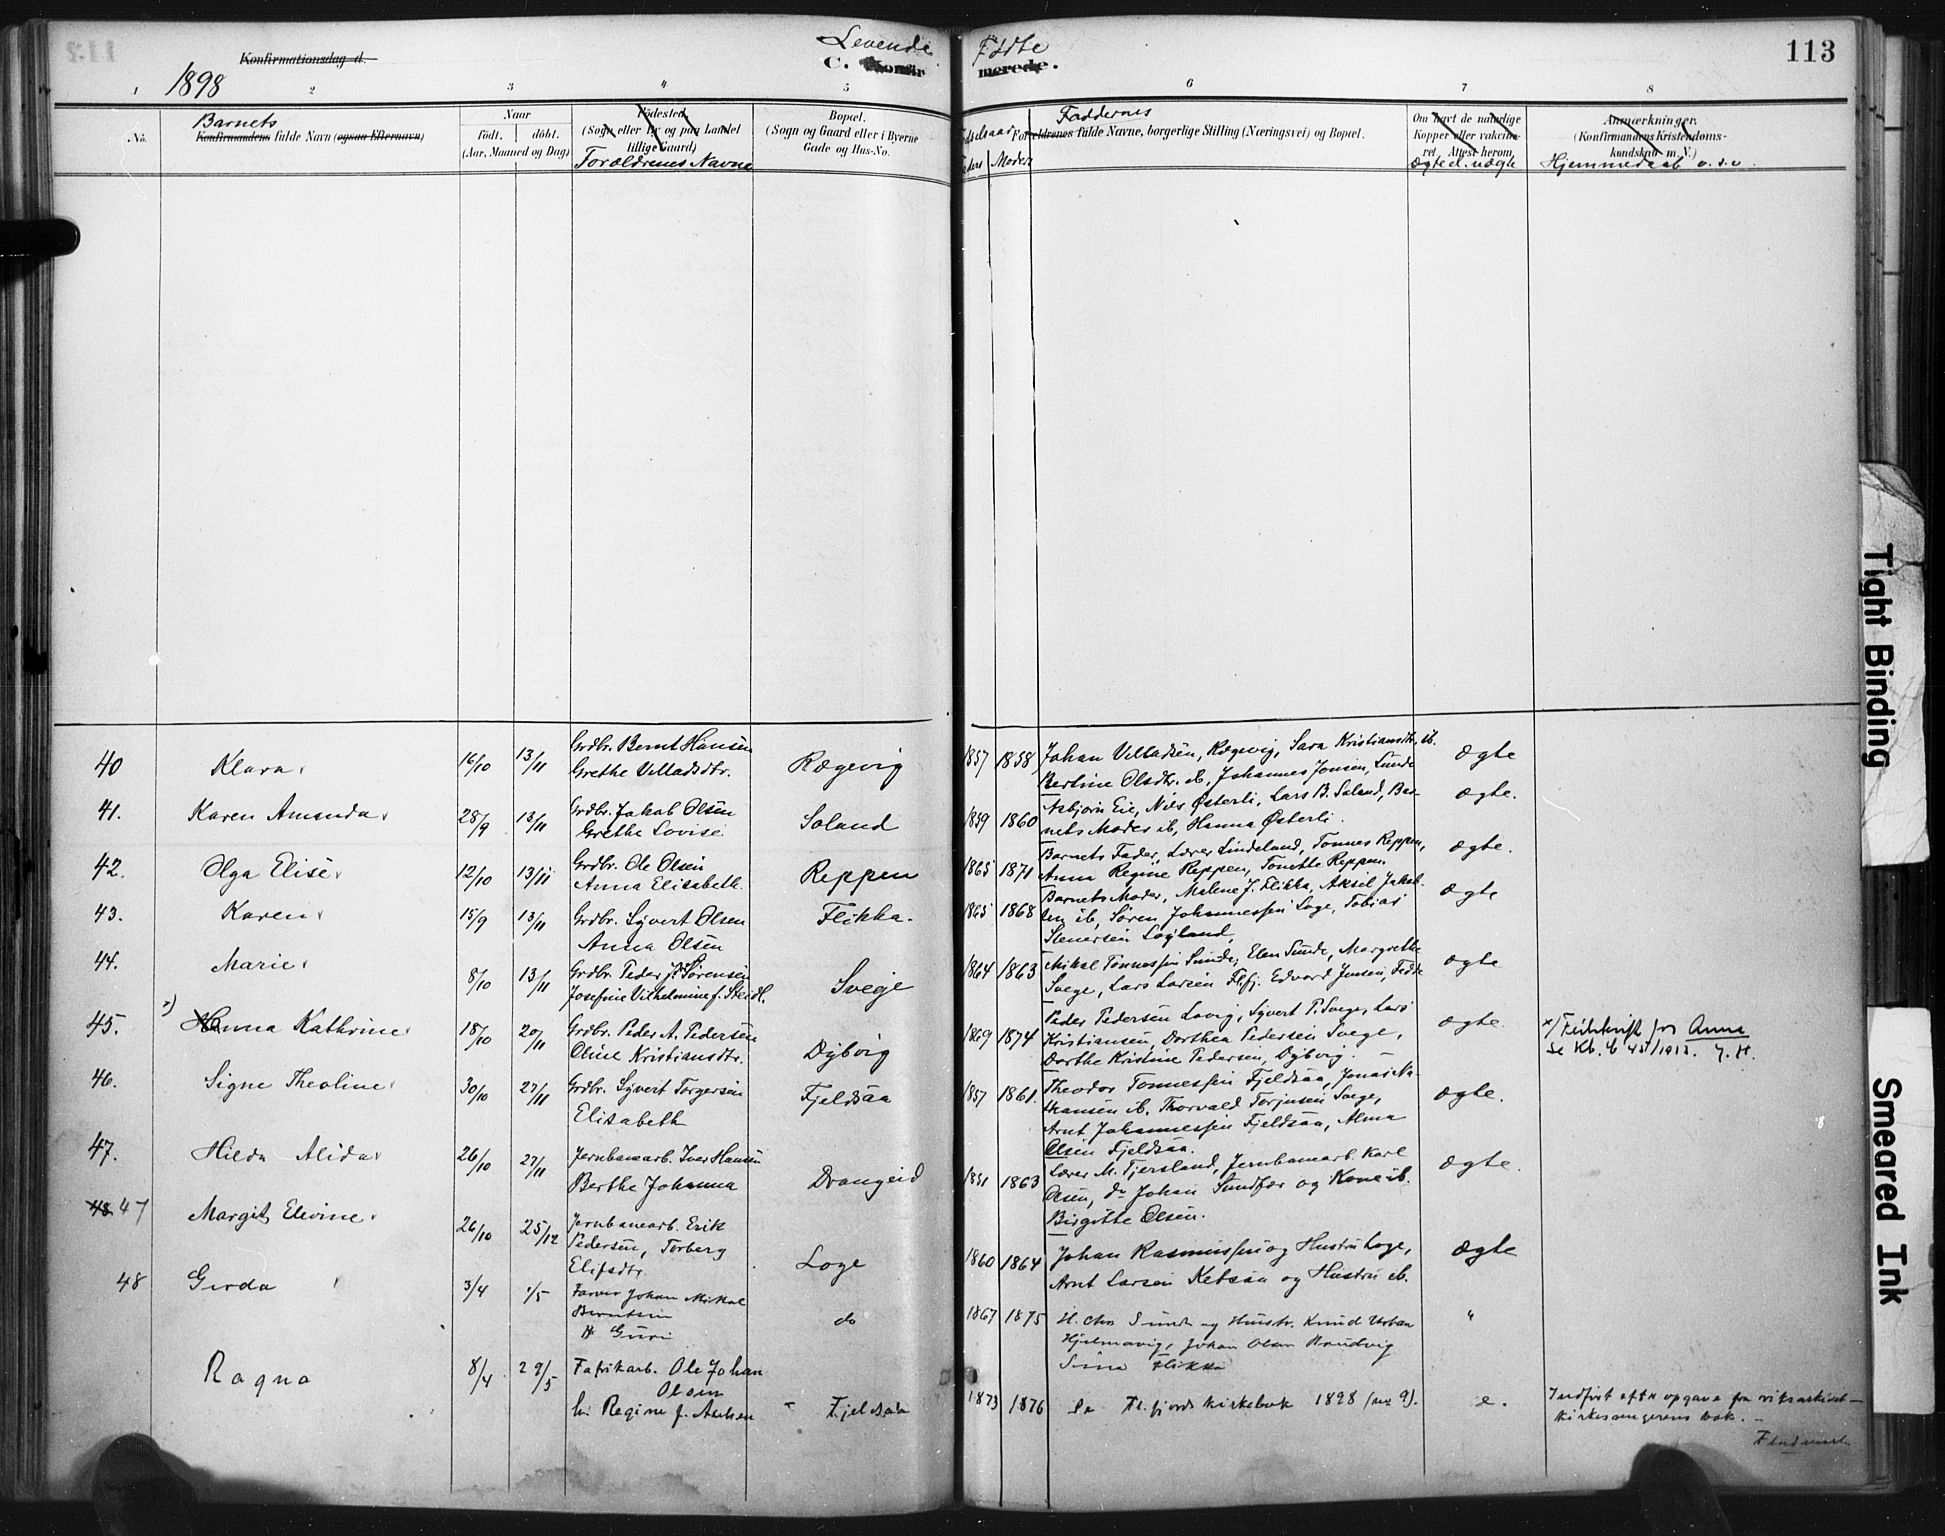 113
Levende Fødte
C. Konfirmerede.
Konfirmationsdag d.
1898
1 2 3 4 5 6 7 8
No.
Barnets
Konfirmandens fulde Navn (ogsaa Efternavn)
Naar
födt. döbt.
(Aar, Maaned og Dag)
Födested
(Sogn eller By og paa Landet
tillige Gaard)
Forældrenes Navne
Bopæl.
(Sogn og Gaard eller i Byerne
Gade og Hus-No.
Moders
Faddernes
Forældrenes fulde Navne, borgerlige Stilling (Næringsvei) og Bopæl.
Om havt de naturlige
Kopper eller vakcine-
ret. Attest herom.
Ægte el. uægte
Anmærkninger.
(Konfirmandens Kristendoms-
kundskab m. V.)
Hjemmedøbt o.s.v.
40 Klara 16/10 13/11
Grdbr. Bernt Hansen
Grethe Villadsdtr.
Rægevig
1857 1858
Johan Villadsen, Rægevig, Sara Kristiansdtr. ib.
Bertine Olsdtr. ib, Johannes Jonsen, Sunde
Ægte
41. Karen Amanda 28/9 13/11
Grdbr. Jakob Olsen
Grethe Lovise
Soland
1859 1860
Asbjørn Eie, Nils Østerli, Lars B. Soland, Bar-
nets Moder ib, Hanna Østerli.
Ægte.
42. Olga Elise 12/10 13/11
Grdbr. Ole Olsen
Anna Elisabeth
Reppen
1865 1871
Barnets Fader, Lærer Lindeland, Tønnes Reppen,
Anna Regine Reppen, Tonette Reppen.
Ægte.
43. Karen 15/9 13/11
Grdbr. Syvert Olsen
Anna Olsen
Flikka.
1865 1868
Barnets Moder, Malene J. Flikka, Aksel Jakob-
sen ib, Søren Johannessen Loge, Tobias
Stenersen Logland,
Ægte
44. Marie 8/10 13/11
Grdbr. Peder Sørensen
Josefine Vilhelmine f. Steidl.
Svege
1864 1863
Mikal Tønnessen Sunde, Elen Sunde, Margrethe
Svege, Lars Larsen Flfj. Edvard Jensen, Fede
Ægte
45. x) Hanna Kathrine 18/10 20/11
Grdbr. Peder A. Pedersen
Oline Kristiansdtr.
Dybvig
1869 1874
Peder Pedersen Lavig, Syvert P. Svege, Lars
Kristiansen, Dorthea Pedersen Svege,
Dorthe Kristine Pedersen, Dybvig.
Ægte.
x/ Feilskrift for Anna
se Kb. 45/1913. J. H.
46. Signe Theoline 30/10 27/11
Grdbr. Syvert Torgersen
Elisabeth
Fjeldsaa
1857 1861.
Theodor Tønnessen Fjeldsaa, Jonas Na-
thansen ib. Thorvald Torjusen Svege,
Arnt Johannessen Fjeldsaa, Alma
Olsen Fjeldsaa.
Ægte.
47. Hilda Alida 26/10 27/11
Jernbanearb. Iver Hansen
Berthe Johanna
Drangeid
1851 1863
Lærer M. Tjersland, Jernbanearb. Karl
Olsen, do Johan Sundfør og Kone ib.
Birgitte Olsen.
Ægte.
48 47 Margit Elevine 26/10 25/12
Jernbanearb. Erik
Pedersen, Torberg
Elifsdtr.
Loge
1860 1864
Johan Rasmussen og Hustru Loge,
Arnt Larsen Ketsaa og Hustru ib.
Ægte
48 Gerda 3/4 1/5
Farver Johan Mikal
Berntsen
H Guri
do
1867 1875
H. Chr Sunde og Hustr. Knud Urban
Hjelmavig, Johan Olsen Brudvig
Sina Flikka
"
Ragna 8/4 29/5
Fabrikarb. Ole Johan
Olsen
h: Regine f. Axelsen
Fjeldsaa
1873 1876
Se Fl.fjords kirkebok 1898 (nr 9).
e.
Indført efter opgave fra riksarkivet –
kirkesangerens bok. –